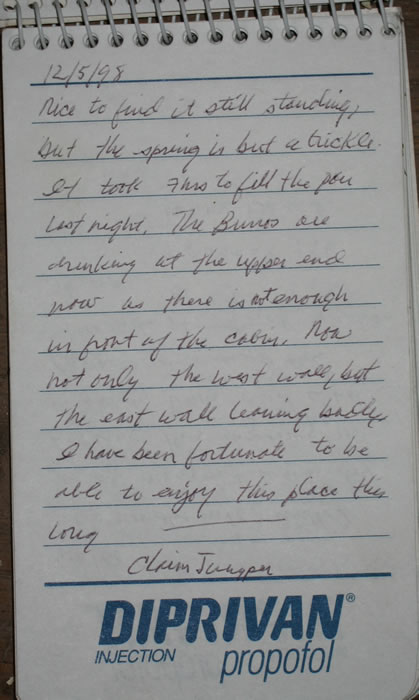 12/5/98
Nice to find it still standing,
but the spring is but a trickle.
It took 7 hrs to fill the pan
last night. The Burros are
drinking at the upper end
now as there is not enough
in front of the cabin. Now
not only the west wall, but
the east wall leaning badly.
I have been fortunate to be
able to enjoy this place this
long
Claim Jumper
DIPRIVAN®
INJECTION propofol